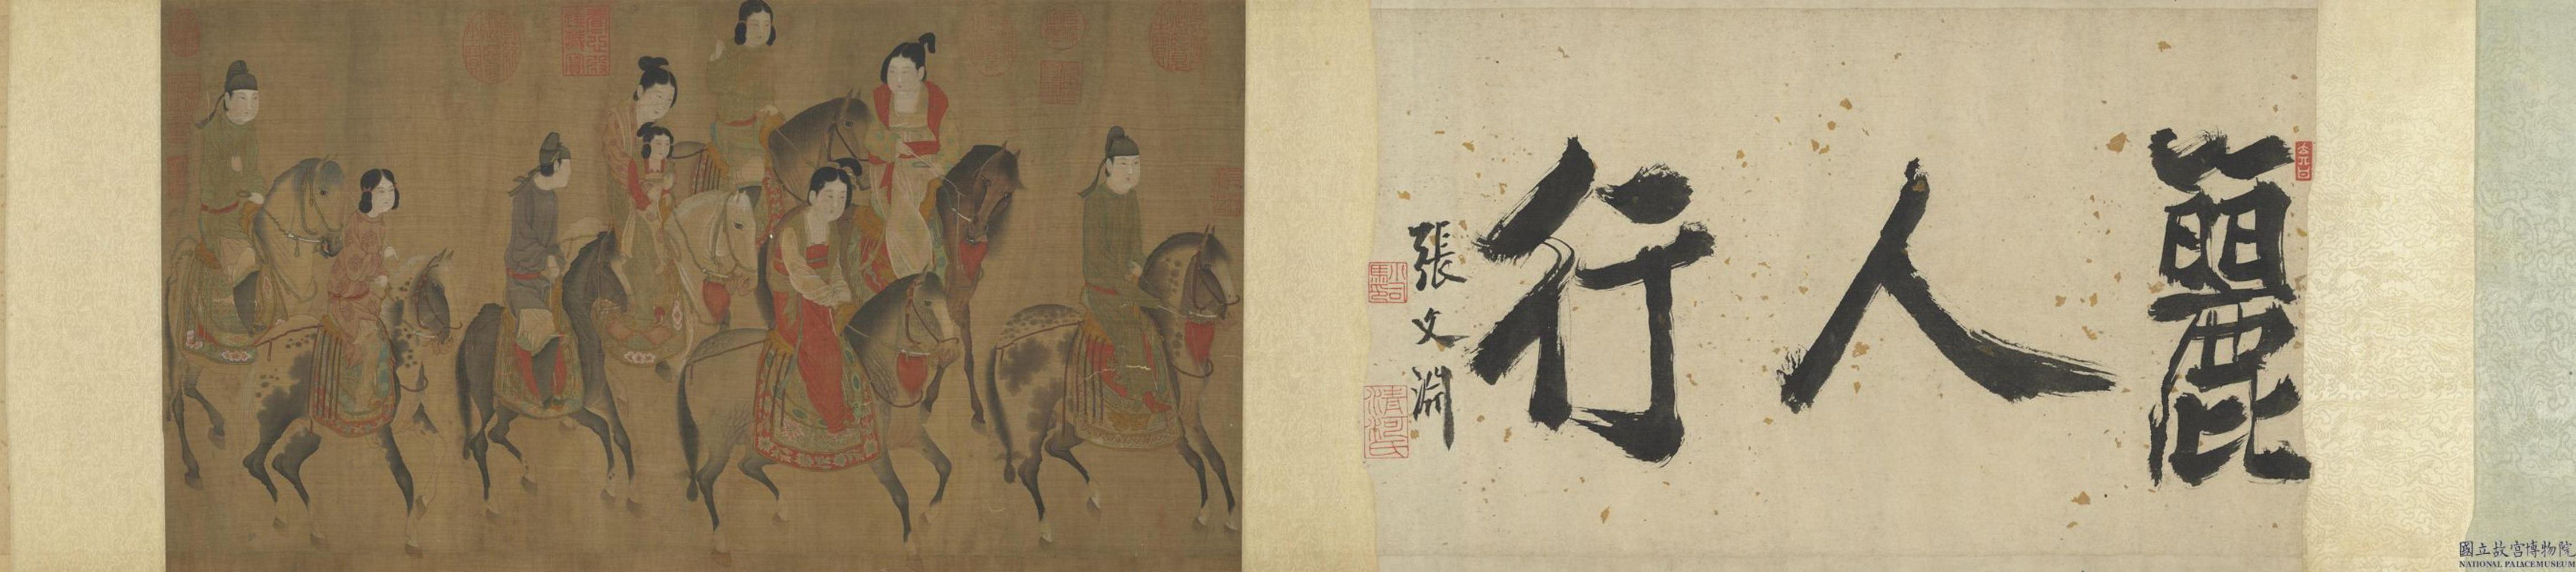 麗人行
張文淵
清河氏
國立故宮博物院
NATIONAL PALACE MUSEUM